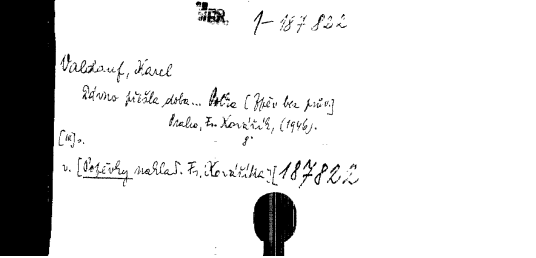 1-187822
Valdauf, Karel
Dávno přešla doba... Polka [Zpěv bez prův.]
Praha, Fr. Kovářík, (1946).
8°
v. [Popěvky naklad. Fr. Kováříka.] [187822